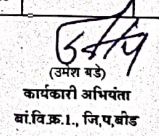 (उमेश बडे)
कार्यकारी अभियंता
बां.वि.क्र.1., जि,प,बीड